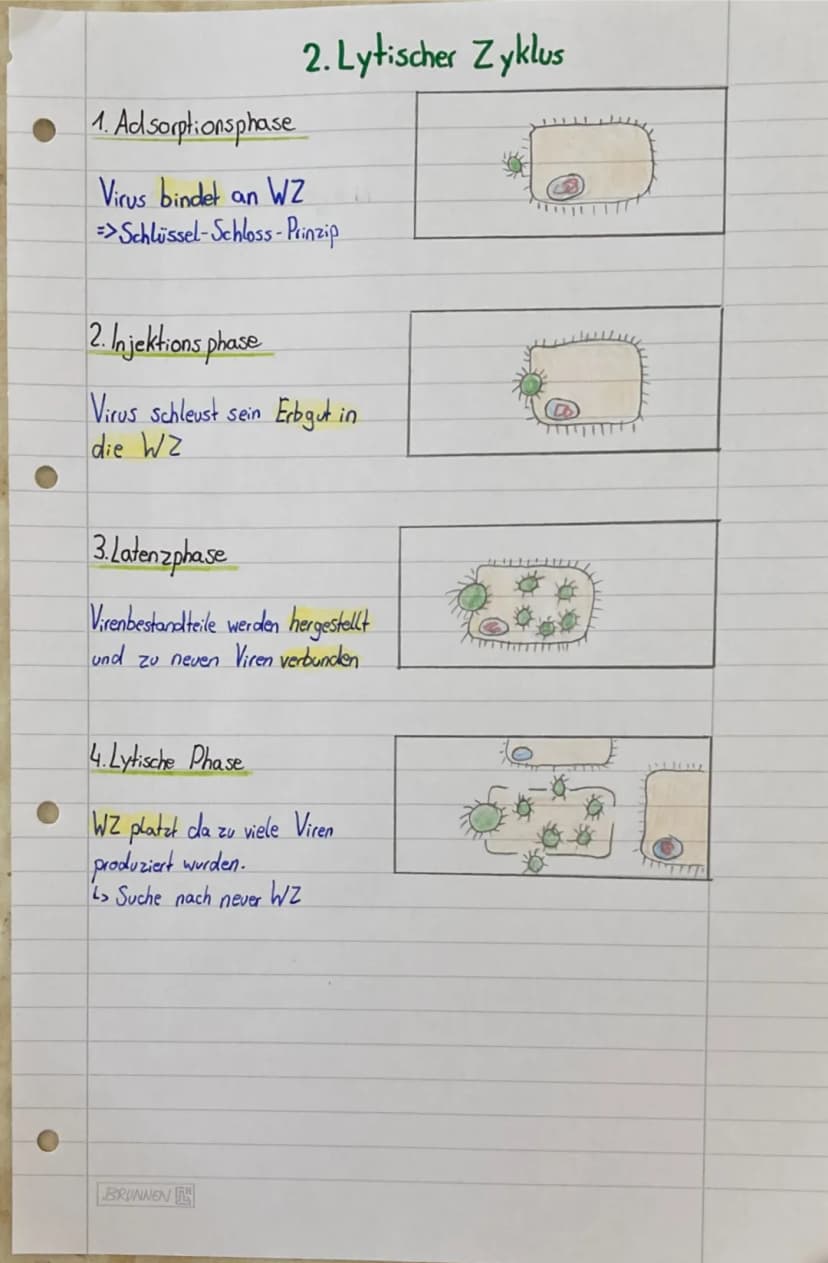 2. Lytischer Zyklus
1. Adsorptionsphase
Virus bindet an WZ
=> Schlüssel-Schloss-Prinzip
2. Injektionsphase
Virus schleust sein Erbgut in
die WZ
3. Latenzphase
Virenbestandteile werden hergestellt
und zu neuen Viren verbunden
4. Lytische Phase
WZ platzt da zu viele Viren
produziert wurden.
↳ Suche nach neuer WZ
BRUNNEN